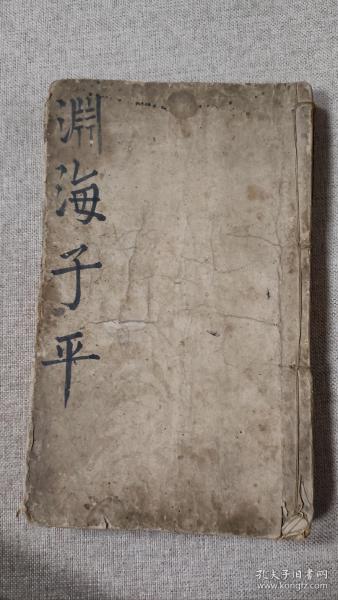 淵海子平
孔夫子旧书网
www.kongfz.com